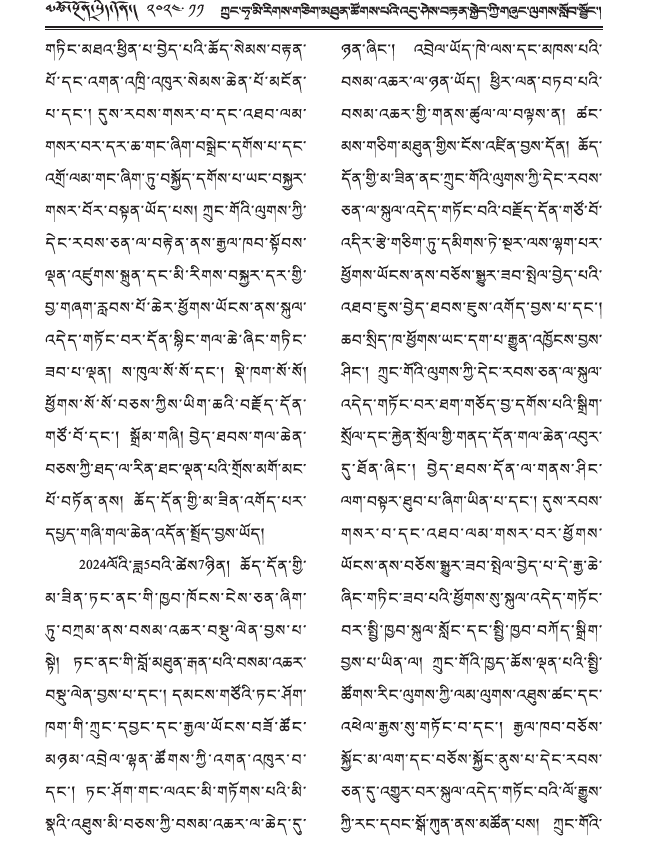 ༢༠༢༤.༡༡ ཀྲུང་ཧྭ་མི་རིགས་གཅིག་མཐུན་ཚོགས་པའི་འདུ་ཤེས་བརྟན་སྐྱེད་ཀྱི་གཞུང་ལུགས་སློབ་སྦྱོང་།
གཏིང་མཐའ་ཕྱིན་པ་བྱེད་པའི་ཆོད་སེམས་བརྟན་
པོ་དང་འགན་འཁྲི་འཁུར་སེམས་ཆེན་པོ་མངོན་
པ་དང་། དུས་རབས་གསར་བ་དང་འཐབ་ལམ་
གསར་བར་དར་ཆ་གང་ཞིག་བསྒྲེང་དགོས་པ་དང་
འགྲོ་ལམ་གང་ཞིག་ཏུ་བསྐྱོད་དགོས་པ་ཡང་བསྐྱར་
གསར་བོར་བསྟན་ཡོད་པས། ཀྲུང་གོའི་ལུགས་ཀྱི་
དེང་རབས་ཅན་ལ་བརྟེན་ནས་རྒྱལ་ཁབ་སྟོབས་
ལྡན་འཛུགས་སྐྲུན་དང་མི་རིགས་བསྐྱར་དར་གྱི་
བྱ་གཞག་རླབས་པོ་ཆེར་ཕྱོགས་ཡོངས་ནས་སྐུལ་
འདེད་གཏོང་བར་དོན་སྙིང་གལ་ཆེ་ཞིང་གཏིང་
ཟབ་པ་ལྡན། ས་ཁུལ་སོ་སོ་དང་། སྡེ་ཁག་སོ་སོ།
ཕྱོགས་སོ་སོ་བཅས་ཀྱིས་ཡིག་ཆའི་བརྗོད་དོན་
གཙོ་བོ་དང་། སྒྲོམ་གཞི། བྱེད་ཐབས་གལ་ཆེན་
བཅས་ཀྱི་ཐད་ལ་རིན་ཐང་ལྡན་པའི་གྲོས་མགོ་མང་
པོ་བཏོན་ནས། ཆོད་དོན་གྱི་མ་ཟིན་འགོད་པར་
དཔྱད་གཞི་གལ་ཆེན་འདོན་སྤྲོད་བྱས་ཡོད།
2024ལོའི་ཟླ5བའི་ཚེས7ཉིན། ཆོད་དོན་གྱི་
མ་ཟིན་ཏང་ནང་གི་ཁྱབ་ཁོངས་ངེས་ཅན་ཞིག་
ཏུ་བཀྲམ་ནས་བསམ་འཆར་བསྡུ་ལེན་བྱས་པ་
སྟེ། ཏང་ནང་གི་བློ་མཐུན་རྒན་པའི་བསམ་འཆར་
བསྡུ་ལེན་བྱས་པ་དང་། དམངས་གཙོའི་ཏང་ཤོག་
ཁག་གི་ཀྲུང་དབྱང་དང་རྒྱལ་ཡོངས་བཟོ་ཚོང་
མཉམ་འབྲེལ་ལྷན་ཚོགས་ཀྱི་འགན་འཁུར་བ་
དང་། ཏང་ཤོག་གང་ལའང་མི་གཏོགས་པའི་མི་
སྣའི་འཐུས་མི་བཅས་ཀྱི་བསམ་འཆར་ལ་ཆེད་དུ་
ཉན་ཞིང་། འབྲེལ་ཡོད་ཁེ་ལས་དང་མཁས་པའི་
བསམ་འཆར་ལ་ཉན་ཡོད། ཕྱིར་ལན་བཏབ་པའི་
བསམ་འཆར་གྱི་གནས་ཚུལ་ལ་བལྟས་ན། ཚང་
མས་གཅིག་མཐུན་གྱིས་ངོས་འཛིན་བྱས་དོན། ཆོད་
དོན་གྱི་མ་ཟིན་ནང་ཀྲུང་གོའི་ལུགས་ཀྱི་དེང་རབས་
ཅན་ལ་སྐུལ་འདེད་གཏོང་བའི་བརྗོད་དོན་གཙོ་བོ་
འདིར་རྩེ་གཅིག་ཏུ་དམིགས་ཏེ་སྔར་ལས་ལྷག་པར་
ཕྱོགས་ཡོངས་ནས་བཅོས་སྒྱུར་ཟབ་སྤེལ་བྱེད་པའི་
འཐབ་ཇུས་བྱེད་ཐབས་ཇུས་འགོད་བྱས་པ་དང་།
ཆབ་སྲིད་ཁ་ཕྱོགས་ཡང་དག་པ་རྒྱུན་འཁྱོངས་བྱས་
ཤིང་། ཀྲུང་གོའི་ལུགས་ཀྱི་དེང་རབས་ཅན་ལ་སྐུལ་
འདེད་གཏོང་བར་ཐག་གཅོད་བྱ་དགོས་པའི་སྒྲིག་
སྲོལ་དང་རྐྱེན་སྲོལ་གྱི་གནད་དོན་གལ་ཆེན་འབུར་
དུ་ཐོན་ཞིང་། བྱེད་ཐབས་དོན་ལ་གནས་ཤིང་
ལག་བསྟར་ཐུབ་པ་ཞིག་ཡིན་པ་དང་། དུས་རབས་
གསར་བ་དང་འཐབ་ལམ་གསར་བར་ཕྱོགས་
ཡོངས་ནས་བཅོས་སྒྱུར་ཟབ་སྤེལ་བྱེད་པ་དེ་རྒྱ་ཆེ་
ཞིང་གཏིང་ཟབ་པའི་ཕྱོགས་སུ་སྐུལ་འདེད་གཏོང་
བར་སྤྱི་ཁྱབ་སྐུལ་སློང་དང་སྤྱི་ཁྱབ་བཀོད་སྒྲིག་
བྱས་པ་ཡིན་ལ། ཀྲུང་གོའི་ཁྱད་ཆོས་ལྡན་པའི་སྤྱི་
ཚོགས་རིང་ལུགས་ཀྱི་ལམ་ལུགས་འཐུས་ཚང་དང་
འཕེལ་རྒྱས་སུ་གཏོང་བ་དང་། རྒྱལ་ཁབ་བཅོས་
སྐྱོང་མ་ལག་དང་བཅོས་སྐྱོང་ནུས་པ་དེང་རབས་
ཅན་དུ་འགྱུར་བར་སྐུལ་འདེད་གཏོང་བའི་ལོ་རྒྱུས་
ཀྱི་རང་དབང་སྒོ་ཀུན་ནས་མཚོན་པས། ཀྲུང་གོའི་